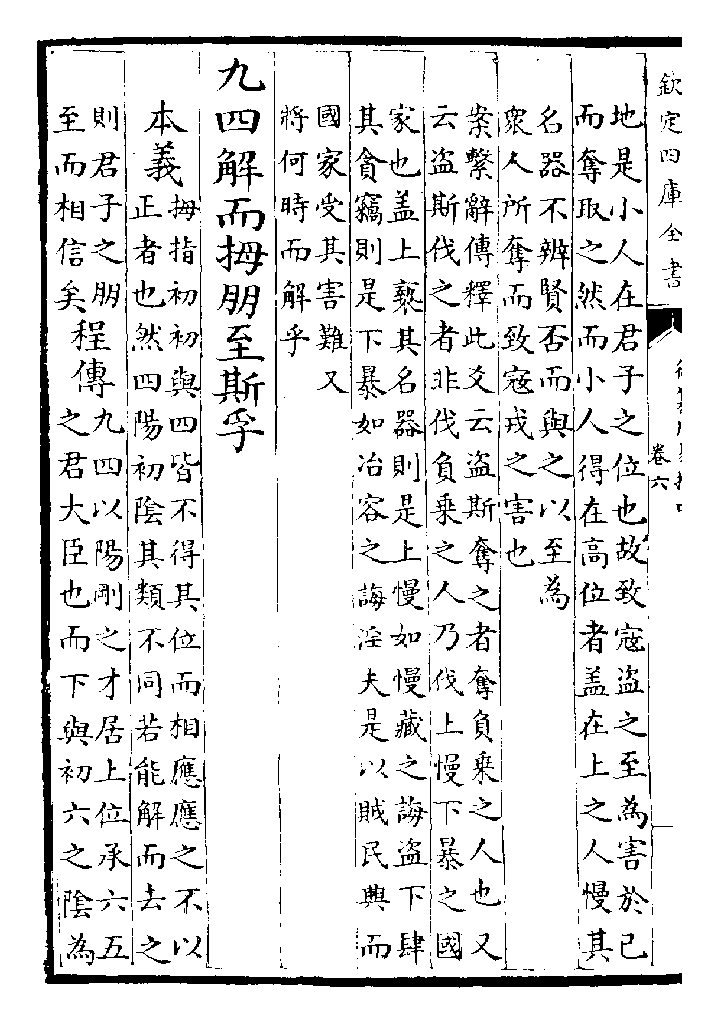 欽定四庫全書
卷六
地是小人在君子之位也故致寇盜之至為害於已
而奪取之然而小人得在高位者盖在上之人慢其
名器不辨賢否而與之以至為
衆人所奪而致寇戎之害也
案繫辭傳釋此爻云盜斯奪之者奪負乗之人也又
云盜斯伐之者非伐負乗之人乃伐上慢下暴之國
家也盖上褻其名器則是上慢如慢藏之誨盜下肆
其貪竊則是下暴如冶容之誨淫夫是以賊民興而
國家受其害難又
將何時而解乎
九四解而拇朋至斯孚
本義
拇指初初與四皆不得其位而相應應之不以
正者也然四陽初陰其類不同若能解而去之
則君子之朋
至而相信矣
程傳
九四以陽剛之才居上位承六五
之君大臣也而下與初六之陰為